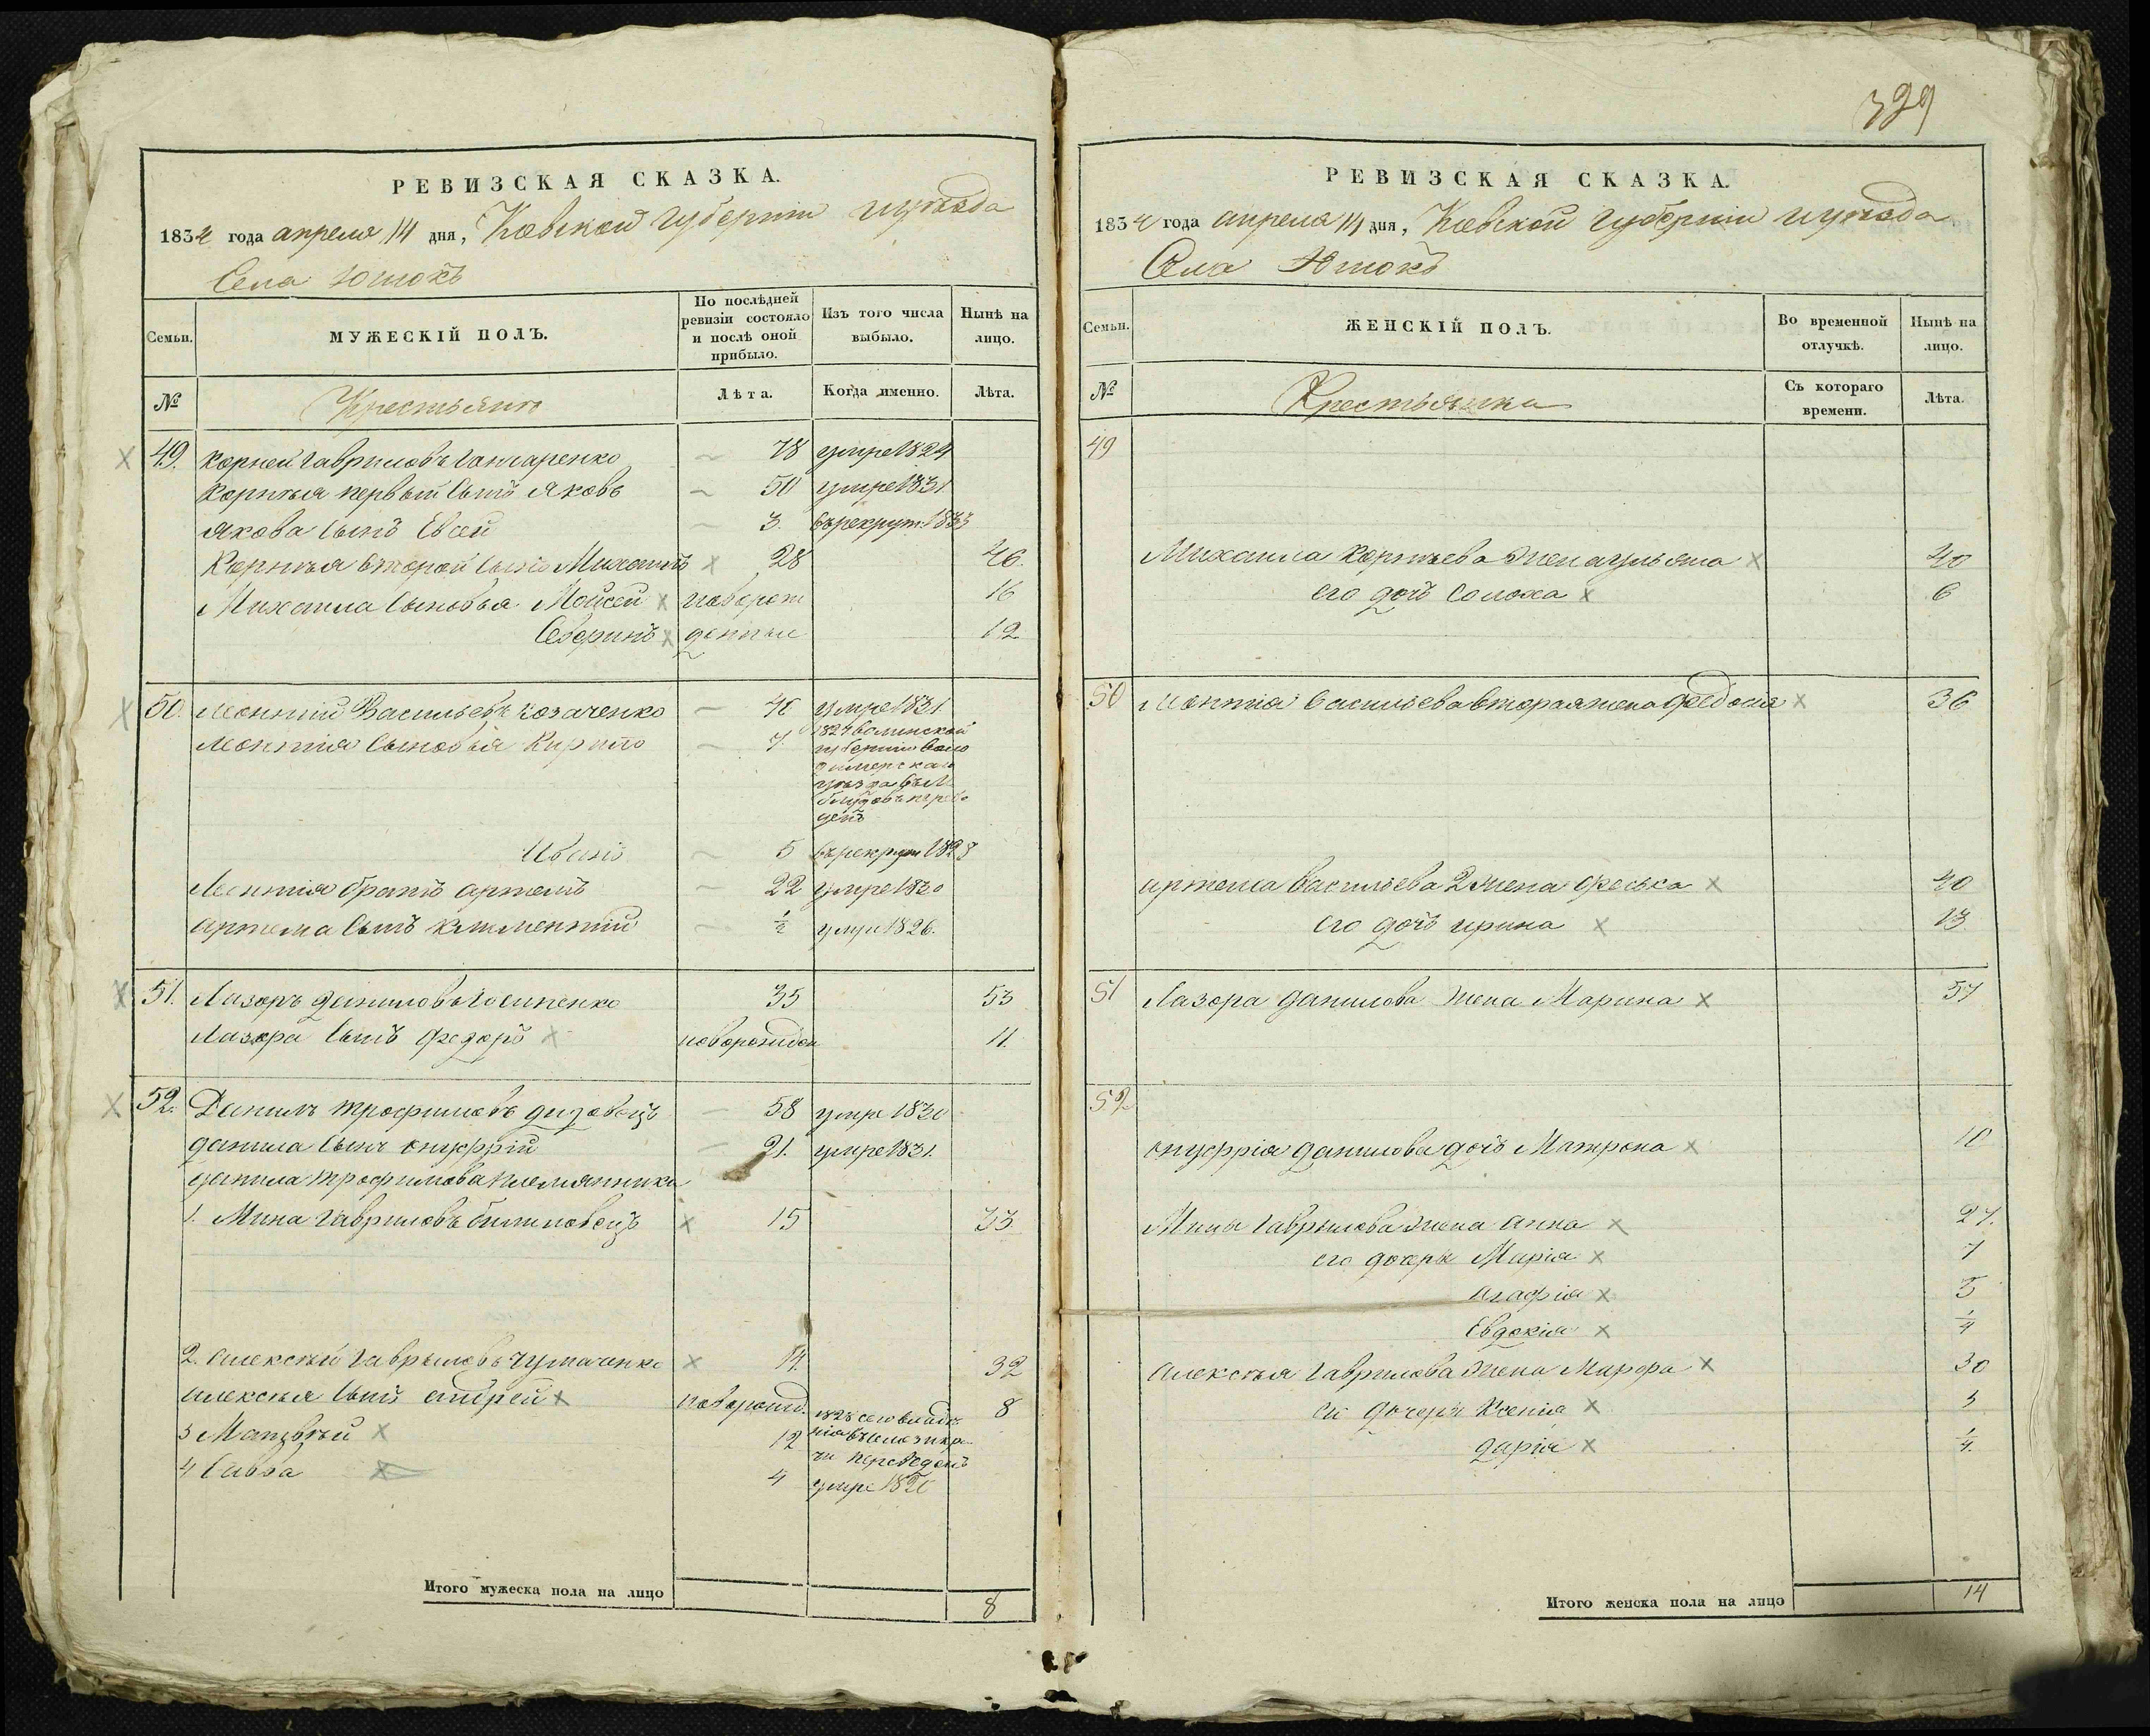 РЕВИЗСКАЯ СКАЗКА.
1834 года апреля 14 дня, Киевской Губернии и уезда
Села Юшокъ
Семьи.
МУЖЕСКІЙ ПОЛЪ.
По послѣдней ревизіи состояло и послѣ оной прибыло.
Изъ того числа выбыло.
Нынѣ на лицо.
№
Крестьяне
Лѣта.
Когда именно.
Лѣта.
49. Корней Гавриловъ Ганчаренко 78 умре 1824
Корнѣя первый Сынъ Яковъ 50 умре 1831
Якова Сынъ Евсей 3. въ рекрут. 1833
Корнѣя второй Сынъ Михаилъ 28 46.
Михаила Сыновья Мойсей новорож 16
Северинъ денные 12
50. Леонтий Васильевъ Козаченко 40 умре 1831
Леонтия Сыновья Кирило 7. 1829 волинской
губернии воло
димерскаго
уезда въ М
переве
денъ
Иванъ 5 въ рекруты 1828
Леонтия братъ артемъ 22 умре 1830
артема Сынъ климентий ½ умре 1826.
51. Лазоръ даниловъ Осипенко 35 53
Лазора Сынъ федоръ новорожден 11.
52. Данилъ трофимовъ 58 умре 1830
данила Сынъ онуфрій 21. умре 1831.
данила трофимова племянники
1. Мина гавриловъ 15 33
2. алексѣй гавриловъ чумаченко 14. 32
алексѣя Сынъ андрей новорожд. 8
3 Матвѣй 12 1828 сего владѣ
нія въ
переведенъ
4 Савва 4 умре 1826
Итого мужеска пола на лицо 8
329
РЕВИЗСКАЯ СКАЗКА.
1834 года апреля 14 дня, Киевской Губернии и уезда
Села Юшокъ
Семьи.
ЖЕНСКІЙ ПОЛЪ.
Во временной отлучкѣ.
Нынѣ на лицо.
№
Крестьянки
Съ котораго времени.
Лѣта.
49
Михаила Корнѣева Жена ульяна 40
его дочь Солоха 6
50 Леонтія Васильева вторая жена федосия 36
артема Васильева 2 жена феська 40
его дочь ирина 13
51 Лазора данилова жена Марина 57
52
онуфрія данилова дочь Матрона 10
Мины Гаврилова жена анна 27.
его дочери Марія 7
агафія 5
Евдокія ¼
алексѣя гаврилова жена Марфа 30
дочери Ксенія 3
дарія ¼.
Итого женска пола на лицо 14